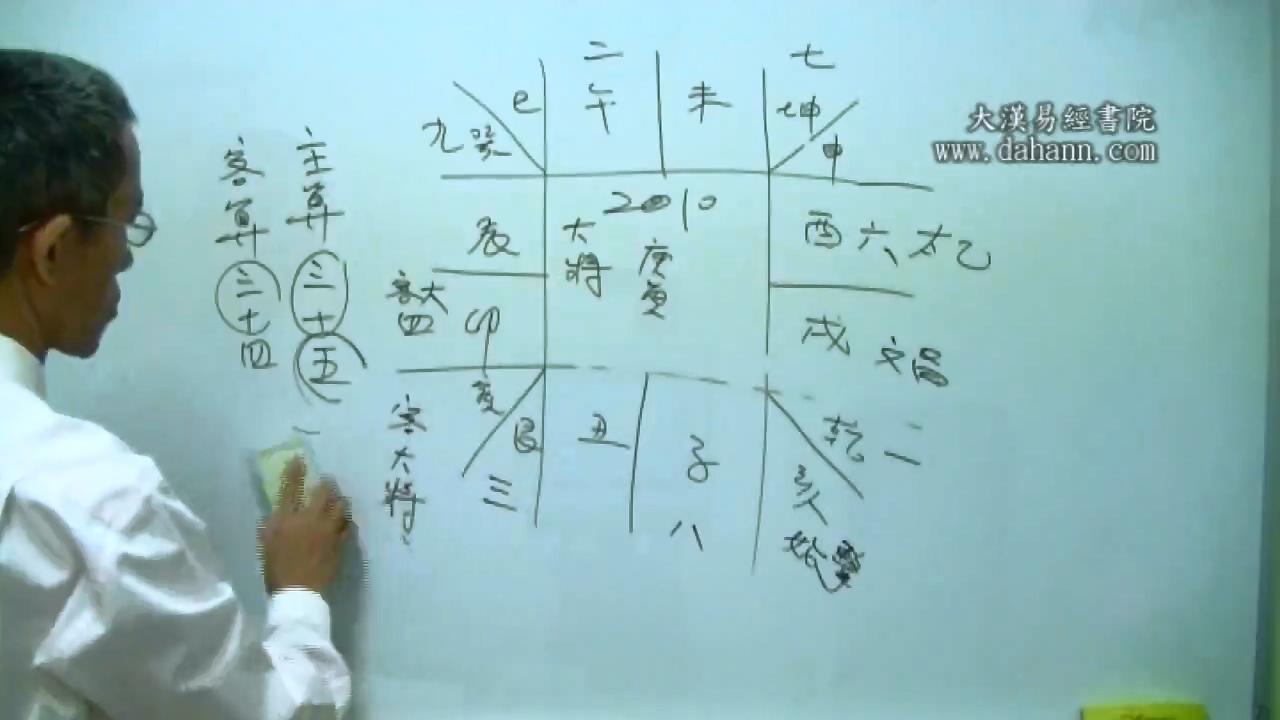 大漢易經書院
www.dahann.com
主算三十五
客算三十四
二
午
未
七
坤
申
巳
九
巽
辰
卯
四
2010
庚寅
大將
酉 六 太乙
戌 文昌
乾 一
亥
始擊
子
八
丑
艮
三
客大將